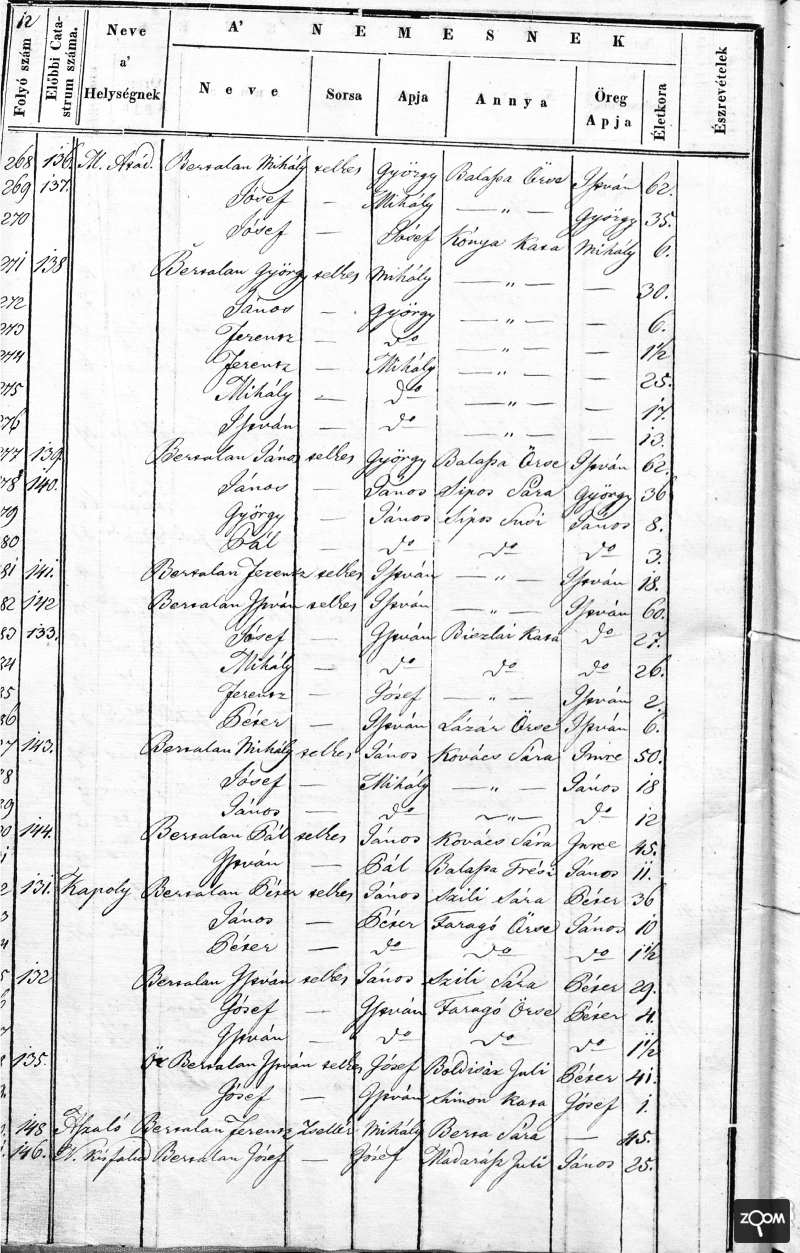 12
A' NEMESNEK
Folyó szám | Előbbi Catastrum száma. | Neve a' Helységnek | Neve | Sorsa | Apja | Annya | Öreg Apja | Életkora | Észrevételek
268 136. M. Acád. Bertalan Mihály telkes György Balassa Örse István 62.
269 137. Jósef — Mihály — " — György 35.
270 Jósef — Jósef Kónya Kata Mihály 6.
271 138 Bertalan György telkes Mihály — " — — 30.
272 János — György — " — — 6.
273 Ferentz — do — " — — 1½
274 Ferentz — Mihály — " — — 25.
275 Mihály — do — " — — 17.
276 István — do — " — — 13.
277 139. Bertalan János telkes György Balassa Örse István 62.
278 140. János — János Sipos Sára György 36
79 György — János Sipos Susi János 8.
80 Pál — do do do 3.
81 141. Bertalan Ferentz telkes István — " — István 18.
82 142 Bertalan István telkes István — " — István 60.
83 133. Jósef — István Kata do 27.
84 Mihály — do do do 26.
85 Ferentz — Jósef — " — István 2.
86 Péter — István Lázár Örse István 6.
7 143. Bertalan Mihály telkes János Kovács Sára Imre 50.
8 Jósef — Mihály — " — János 18
9 János — do — " — do 12
0 144. Bertalan Pál telkes János Kovács Sára Imre 45.
1 István — Pál Balassa Trézi János 11.
2 131. Kapoly Bertalan Péter telkes János Szili Sára Péter 36
3 János — Péter Faragó Örse János 10
4 Péter — do do do 1½
5 132 Bertalan István telkes János Szili Sára Péter 29.
6 Jósef — István Faragó Örse Péter 4.
7 István — do do do 1½
8 135. Öz Bertalan István telkes Jósef Boldisár Juli Péter 41.
Jósef — István Simon Kata Jósef 1.
148 Aszaló Bertalan Ferentz Zsellér Mihály Berta Sára — 45.
146. N. Kisfalud Bertalan Jósef — Jósef Madarász Juli János 25.
ZOOM